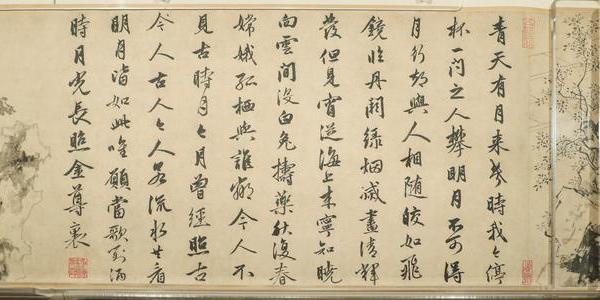 青天有月来幾時我今停
杯一问之人攀明月不可得
月行却與人相随皎如飛
鏡臨丹闕緑烟滅盡清輝
發但見宵從海上来寧知曉
向雲間没白兔擣藥秋復春
嫦娥孤栖與誰鄰今人不
見古時月今月曾經照古
今人古人今人若流水共看
明月皆如此唯願當歌對酒
時月光長照金尊裏